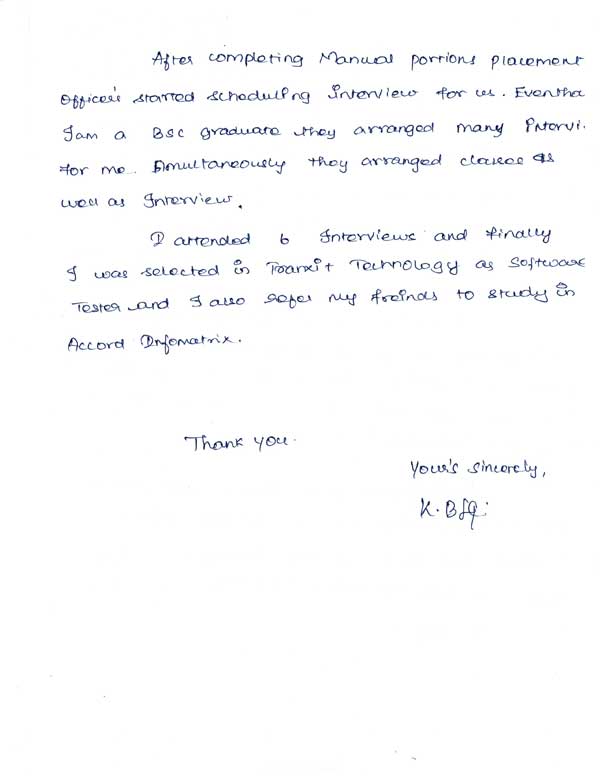 After completing Manual portions placement
officer's started scheduling Interview for us. Eventho
I am a BSC graduate they arranged many Intervi.
for me. Simultaneously they arranged classes as
well as Interview.
I attended 6 Interviews and finally
I was selected in Tranxit Technology as Software
Tester and I also refer my freinds to study in
Accord Infomatrix.
Thank you.
Your's sincerely,
K.